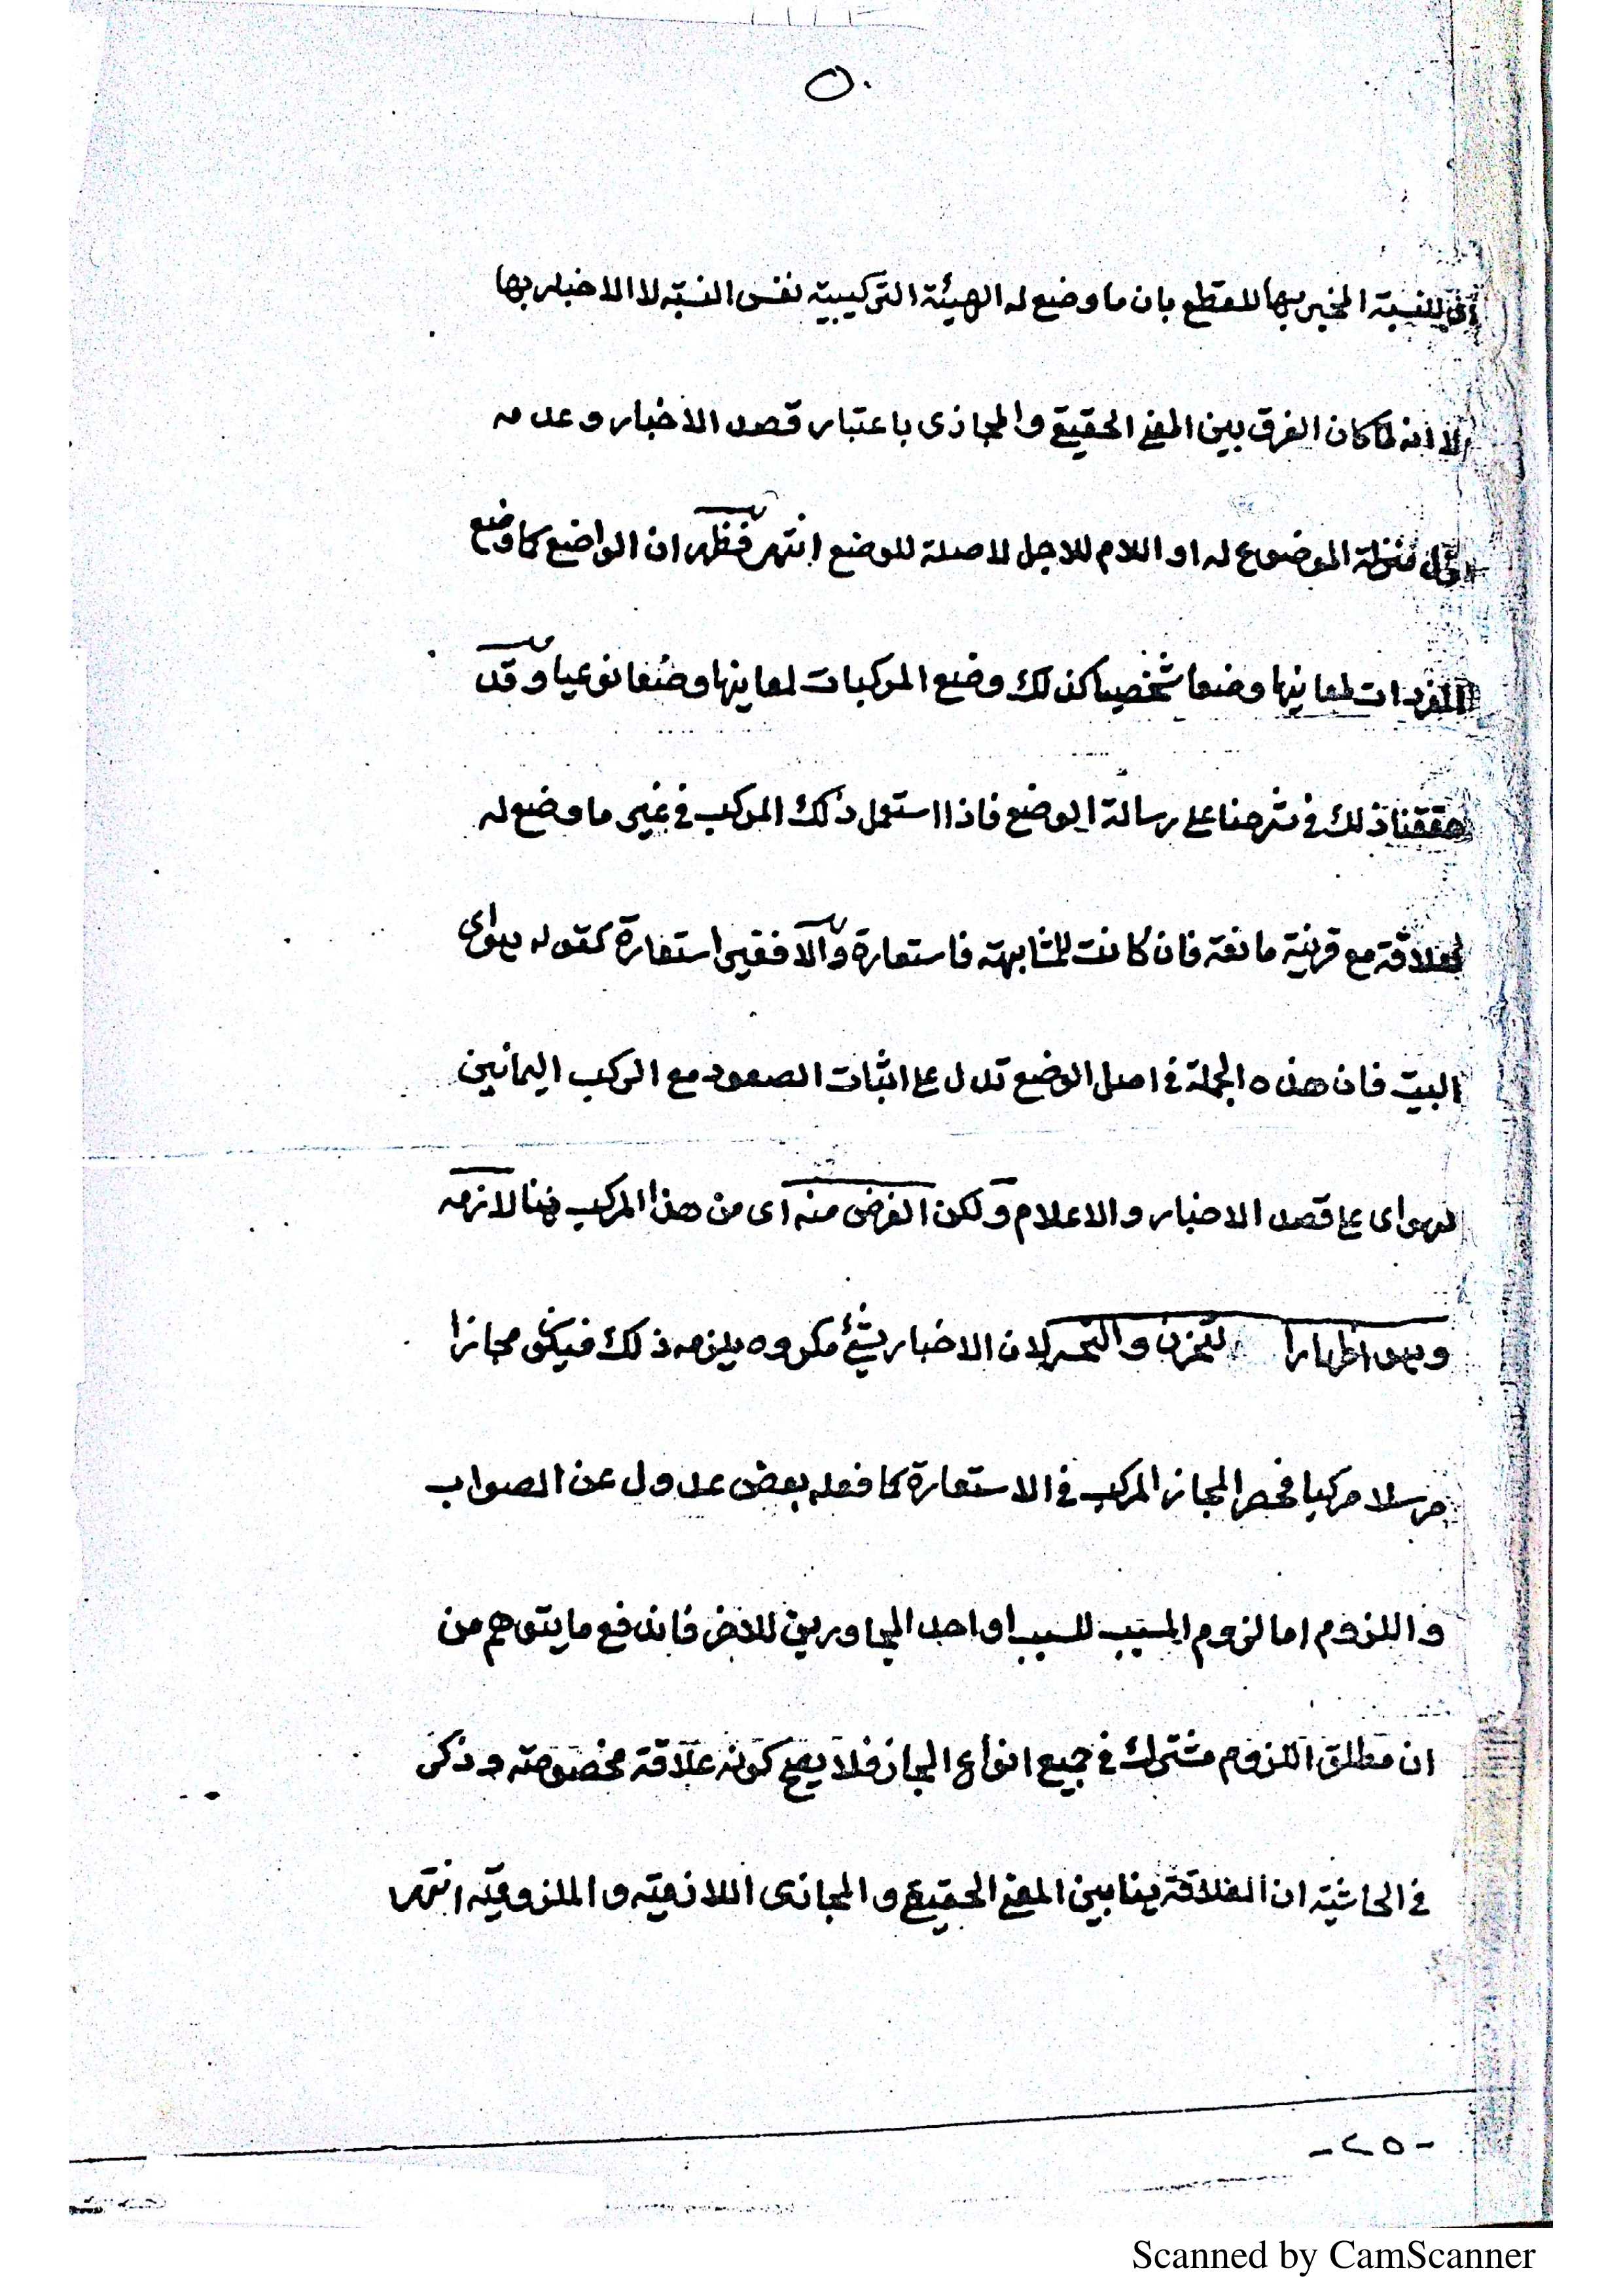 ٥٠
للنسبة المخبر بها للقطع بان ما وضع له الهيئة التركيبية نفس النسبة لا الاخبار بها
الا انه لما كان الفرق بين المعنى الحقيقى والمجازى باعتبار قصد الاخبار وعدمه
منزلة الموضوع له او اللام للاجل لا صلة للوضع انتهى فظهر ان الواضع كما وضع
المفردات لمعانيها وضعا شخصيا كذلك وضع المركبات لمعانيها وضعا نوعيا وقد
حققنا ذلك فى شرحنا على رسالة الوضع فاذا استعمل ذلك المركب فى غير ما وضع له
لعلاقة مع قرينة مانعة فان كانت للمشابهة فاستعارة والا فغير استعارة كقوله هواى
البيت فان هذه الجملة فى اصل الوضع تدل على اثبات الصعود مع الركب اليمانين
لهواى على قصد الاخبار والاعلام ولكن الغرض منه اى من هذا المركب هنا لازمه
وهو اظهار التحزن والتحسر لان الاخبار بشئ مكروه يلزمه ذلك فيكون مجازا
مرسلا مركبا فحصر المجاز المركب فى الاستعارة كما فعله بعض عدول عن الصواب
واللزوم اما لزوم المسبب للسبب او احد المجاورين للاخر فاندفع ما يتوهم من
ان مطلق اللزوم مشترك فى جميع انواع المجاز فلا يصح كونه علاقة مخصوصة وذكر
فى الحاشية ان العلاقة هنا بين المعنى الحقيقى والمجازى اللازمية والملزومية انتهى
-٢٥-
Scanned by CamScanner